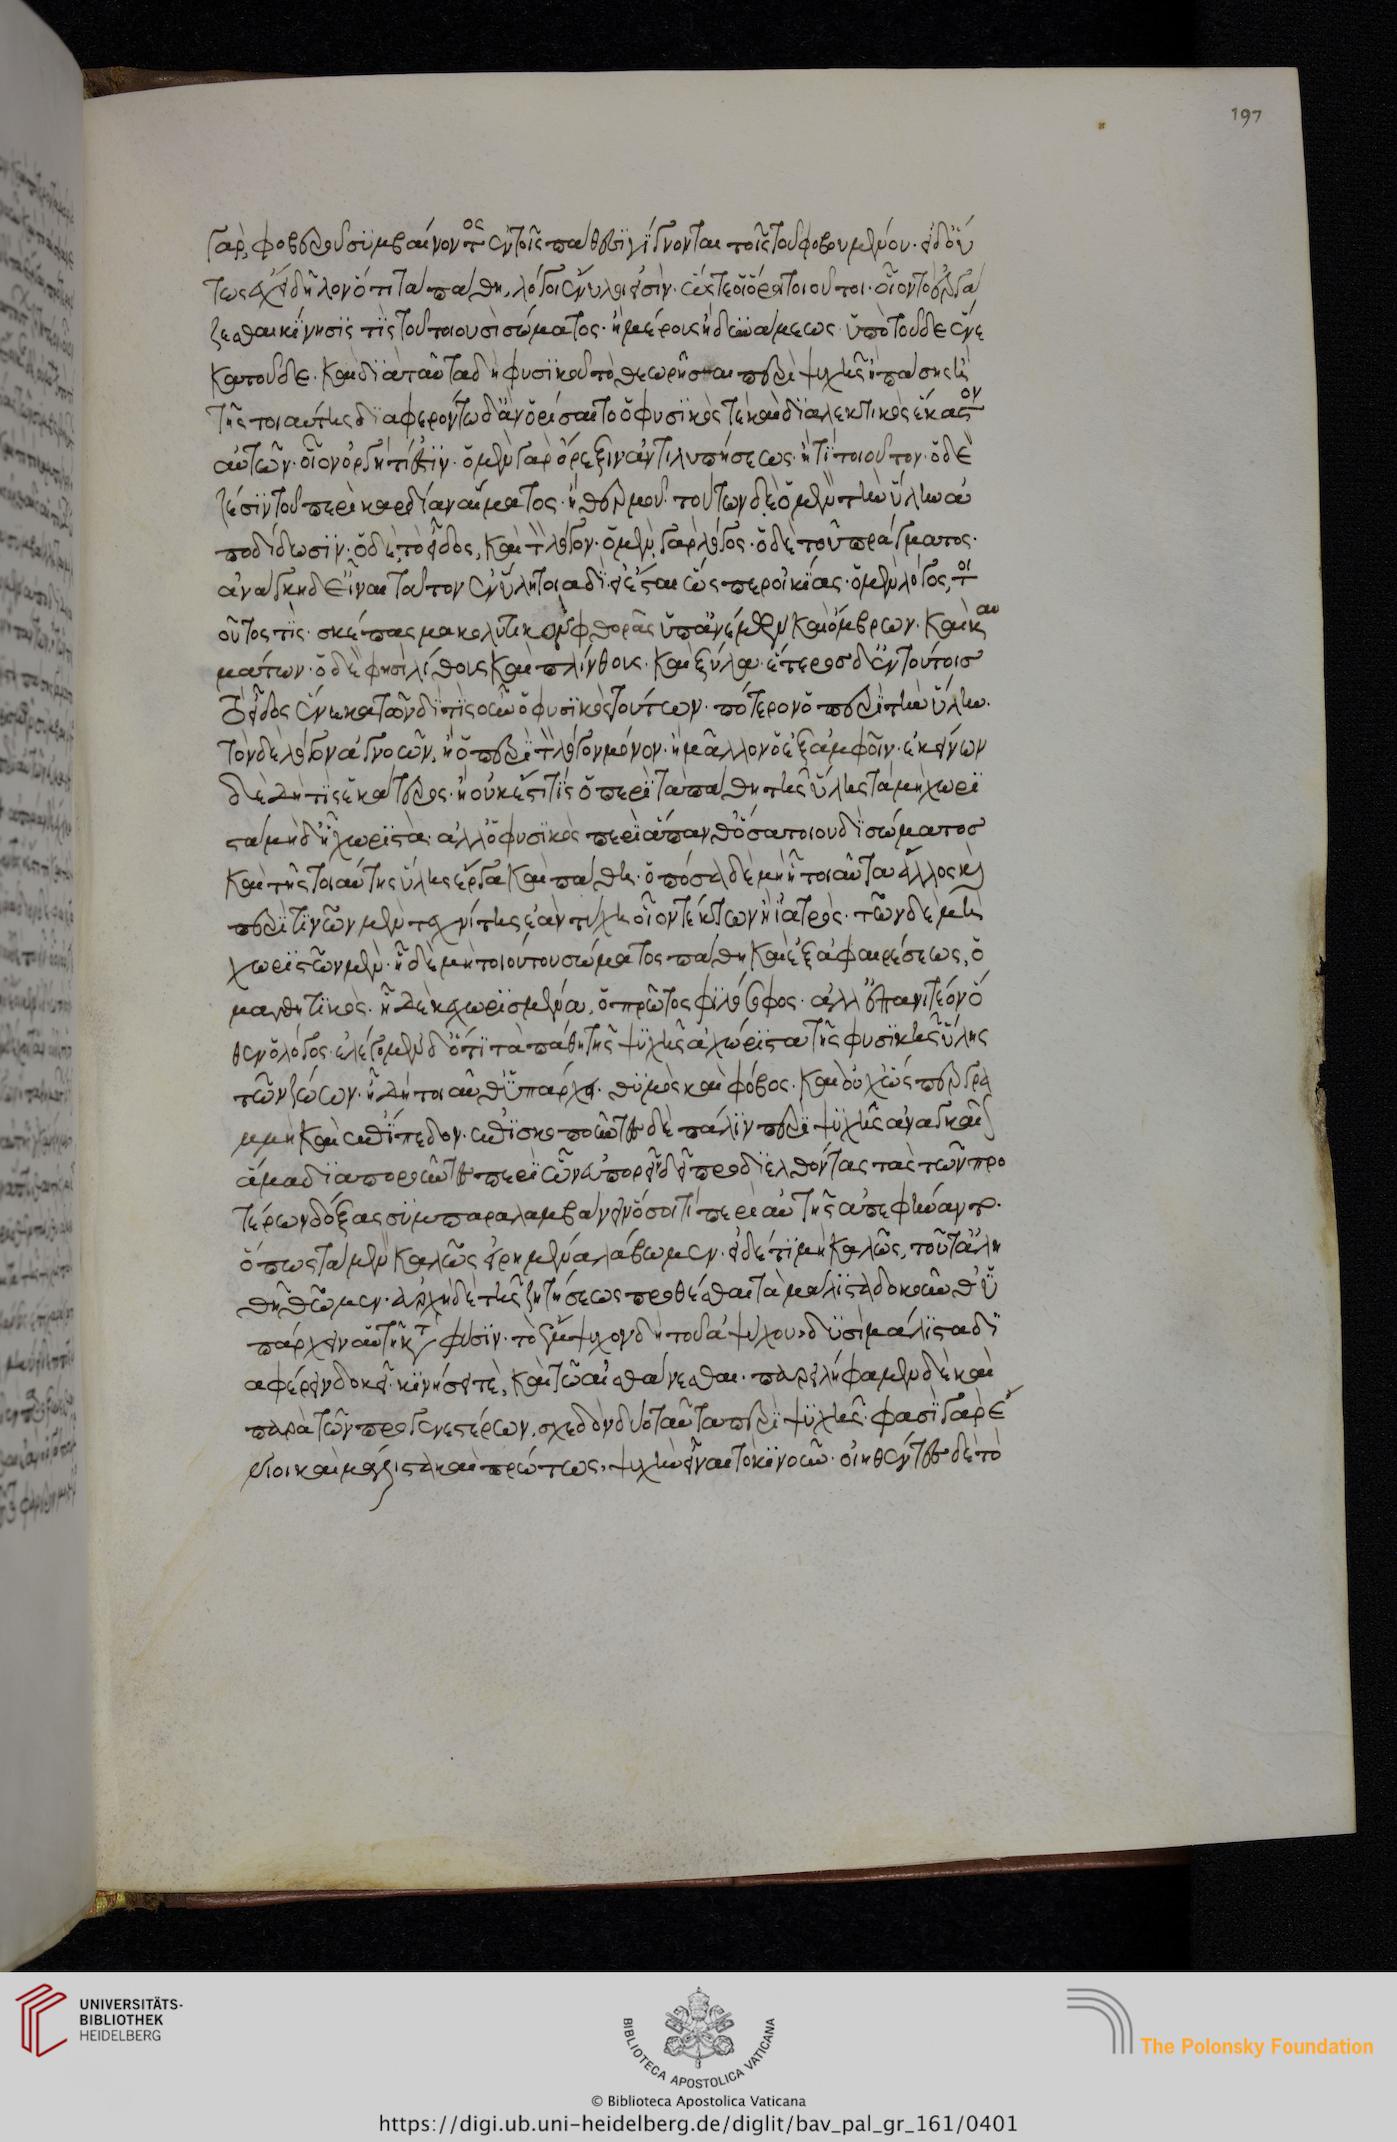 197
γὰρ φοβεροῦ συμβαίνοντος ἐν τοῖς πάθεσι γίγνονται τοῖς τοῦ φοβουμένου· εἰ δ' οὕ
τως ἔχει δῆλον ὅτι τὰ πάθη λόγοι ἔνυλοί εἰσιν· ὥστε οἱ ὅροι τοιοῦτοι· οἷον τὸ ὀργί
ζεσθαι κίνησις τὶς τοῦ τοιουδὶ σώματος· ἢ μέρους ἢ δυνάμεως ὑπὸ τοῦδε ἕνε
κα τοῦδε· καὶ διὰ ταῦτα δὴ φυσικοῦ τὸ θεωρῆσαι περὶ ψυχῆς ἢ πάσης ἢ
τῆς τοιαύτης διαφερόντως δ' ἂν ὁρίσαιτο ὁ φυσικός τε καὶ διαλεκτικὸς ἕκαστον
αὐτῶν· οἷον ὀργὴ τί ἐστιν· ὁ μὲν γὰρ ὄρεξιν ἀντιλυπήσεως· ἤ τι τοιοῦτον· ὁ δὲ
ζέσιν τοῦ περὶ καρδίαν αἵματος· ἢ θερμοῦ· τούτων δὲ ὁ μὲν τὴν ὕλην ἀ
ποδίδωσιν· ὁ δὲ τὸ εἶδος, καὶ τὸν λόγον· ὁ μὲν γὰρ λόγος· ὅδε τοῦ πράγματος·
ἀνάγκη δ' εἶναι τοῦτον ἐν ὕλῃ τοιᾳδὶ εἰ ἔσται ὥσπερ οἰκίας· ὁ μὲν λόγος τοι
οῦτος τίς· σκέπασμα κωλυτικὸν φθορᾶς ὑπ' ἀνέμων καὶ ὄμβρων· καὶ καυ
μάτων· ὁ δὲ φησὶ λίθους καὶ πλίνθους· καὶ ξύλα· ἕτερος δ' ἐν τούτοις
τὸ εἶδος ἕνεκα τωνδὶ τίς οὖν ὁ φυσικὸς τούτων· πότερον ὁ περὶ τὴν ὕλην·
τὸν δὲ λόγον ἀγνοῶν, ἢ ὁ περὶ τὸν λόγον μόνον· ἢ μᾶλλον ὁ ἐξ ἀμφοῖν· ἐκείνων
δὲ δὴ τίς ἑκάτερος· ἢ οὐκ ἔστι τὶς ὁ περὶ τὰ πάθη τῆς ὕλης τὰ μὴ χωρι
στὰ μηδ' ᾗ χωριστὰ· ἀλλ' ὁ φυσικὸς περὶ ἅπανθ' ὅσα τοιουδὶ σώματος
καὶ τῆς τοιαύτης ὕλης ἔργα καὶ πάθη· ὁπόσα δὲ μὴ ᾗ τοιαῦτα ἄλλος καὶ
περὶ τινῶν μὲν τεχνίτης ἐὰν τύχῃ οἷον τέκτων ἢ ἰατρὸς· τῶν δὲ μὴ
χωριστῶν μὲν· ᾗ δὲ μὴ τοιούτου σώματος πάθη καὶ ἐξ ἀφαιρέσεως, ὁ
μαθητικὸς· ᾗ δὲ κεχωρισμένα, ὁ πρῶτος φιλόσοφος· ἀλλ' ἐπανιτέον ὅ
θεν ὁ λόγος· ἐλέγομεν δ' ὅτι τὰ πάθη τῆς ψυχῆς ἀχώριστα τῆς φυσικῆς ὕλης
τῶν ζώων· ᾗ δὴ τοιαῦθ' ὑπάρχει· θυμὸς καὶ φόβος· καὶ οὐχ ὥσπερ γρα
μμὴ καὶ ἐπίπεδον· ἐπισκοποῦντες δὲ πάλιν περὶ ψυχῆς ἀναγκαῖον
ἅμα διαποροῦντες περὶ ὧν εὐπορεῖν δεῖ προδιελθόντας τὰς τῶν προ
τέρων δόξας συμπαραλαμβάνειν ὅσοι τί περὶ αὐτῆς ἀπεφήναντο·
ὅπως τὰ μὲν καλῶς εἰρημένα λάβωμεν· εἰ δέ τι μὴ καλῶς, τοῦτ' εὐλη
θηθῶμεν· ἀρχὴ δὲ τῆς ζητήσεως προθέσθαι τὰ μάλιστα δοκοῦνθ' ὑ
πάρχειν αὐτῇ κατὰ φύσιν· τὸ ἔμψυχον δὴ τοῦ ἀψύχου δυσὶ μάλιστα δι
αφέρειν δοκεῖ· κινήσει τὲ, καὶ τῷ αἰσθάνεσθαι· παρειλήφαμεν δὲ καὶ
παρὰ τῶν προγενεστέρων, σχεδὸν δύο ταῦτα περὶ ψυχῆς· φασὶ γὰρ ἔ
νιοι καὶ μάλιστα καὶ πρώτως, ψυχὴν εἶναι τὸ κινοῦν· οἰηθέντες δὲ τὸ
UNIVERSITÄTS-
BIBLIOTHEK
HEIDELBERG
BIBLIOTECA APOSTOLICA VATICANA
© Biblioteca Apostolica Vaticana
The Polonsky Foundation
https://digi.ub.uni-heidelberg.de/diglit/bav_pal_gr_161/0401